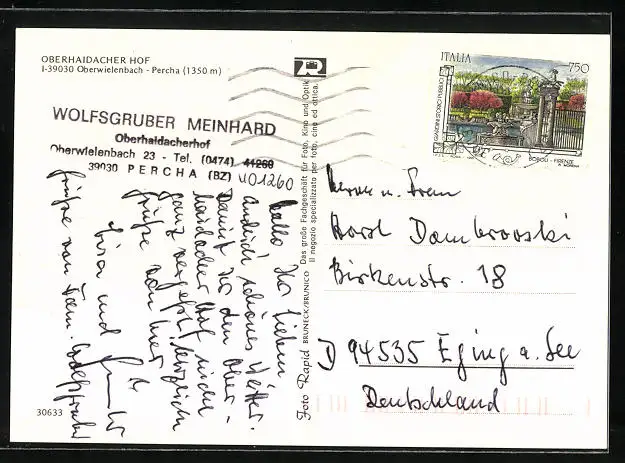 OBERHAIDACHER HOF
I-39030 Oberwielenbach - Percha (1350 m)
WOLFSGRUBER MEINHARD
Oberhaidacherhof
Oberwielenbach 23 - Tel. (0474) 41260
39030 PERCHA (BZ) 401260
Hallo, Ihr Lieben
endlich schönes Wetter.
Damit Ihr den Ober-
haidacher Hof nicht
ganz vergeßt, herzliche
Grüße von hier
und Gunter
Grüße von Fam. Wolfsgruber
30633
Foto Rapid BRUNECK/BRUNICO
Das große Fachgeschäft für Foto, Kino und Optik
Il negozio specializzato per foto, cine ed ottica.
ITALIA 750
GIARDINI STORICI PUBBLICI
BOBOLI - FIRENZE
Herrn u. Frau
Horst Dombrowski
Birkenstr. 18
D 94535 Eging a. See
Deutschland